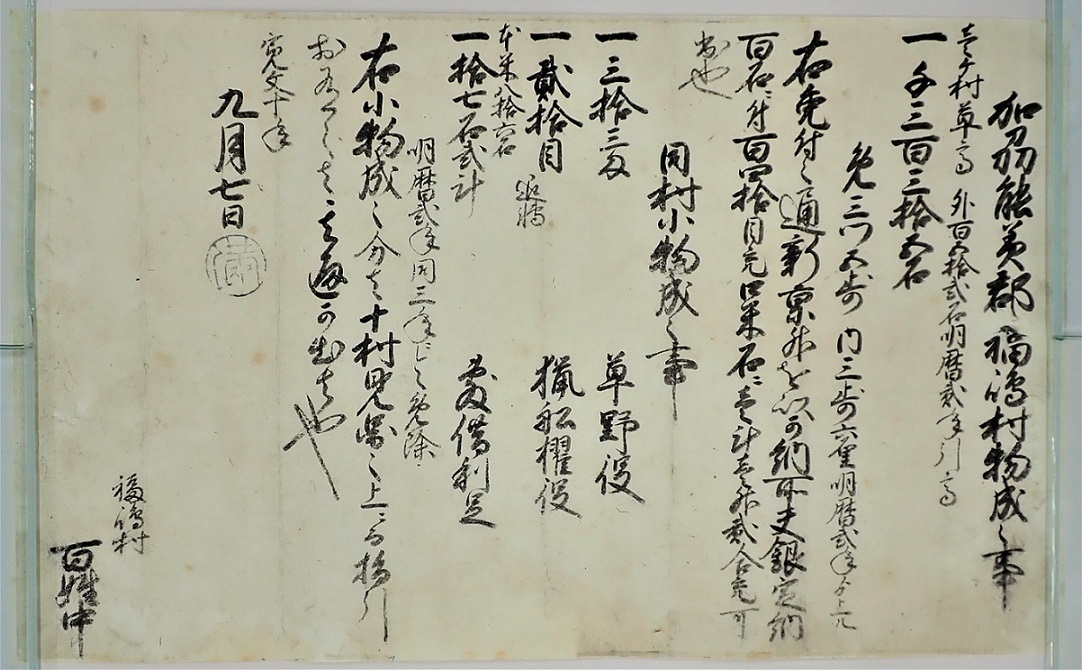 加刕能美郡福嶋村物成之事
壱ヶ村草高　外百五拾弐石明暦弐年引高
一千三百三拾五石
免三ツ五歩　内三歩六厘明暦弐年ゟ上ル
右免付之通新京升を以可納所夫銀定納
百石ニ付百四拾目充口米石ニ壱斗壱升弐合充可
出也
同村小物成之事
一三拾三匁　草野役
一貳拾目　猟船櫂役
本米八拾六石
一拾七石弐斗　敷借利足
明暦弐年同三年ニ令免除
右小物成之分者十村見図之上ニ而指引
於有之者其通可出者也
寛文十年
九月七日
福嶋村
百姓中